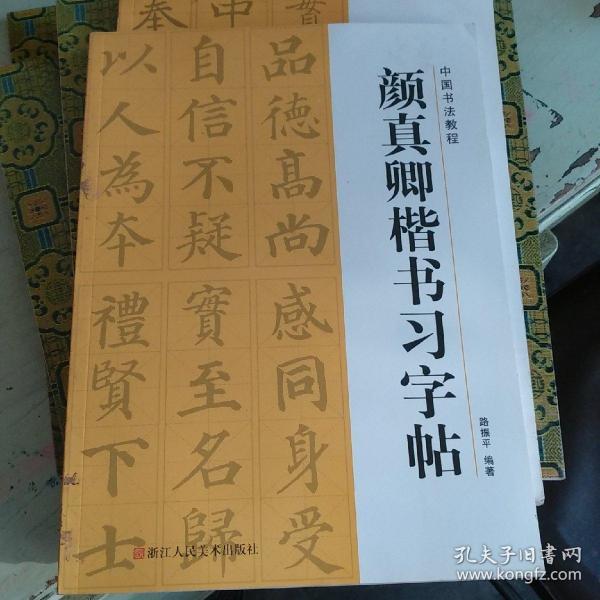 中国书法教程
颜真卿楷书习字帖
路振平 编著
品德高尚
感同身受
自信不疑
實至名歸
以人為本
禮賢下士
浙江人民美术出版社
奉 中
孔夫子旧书网
www.kongfz.com